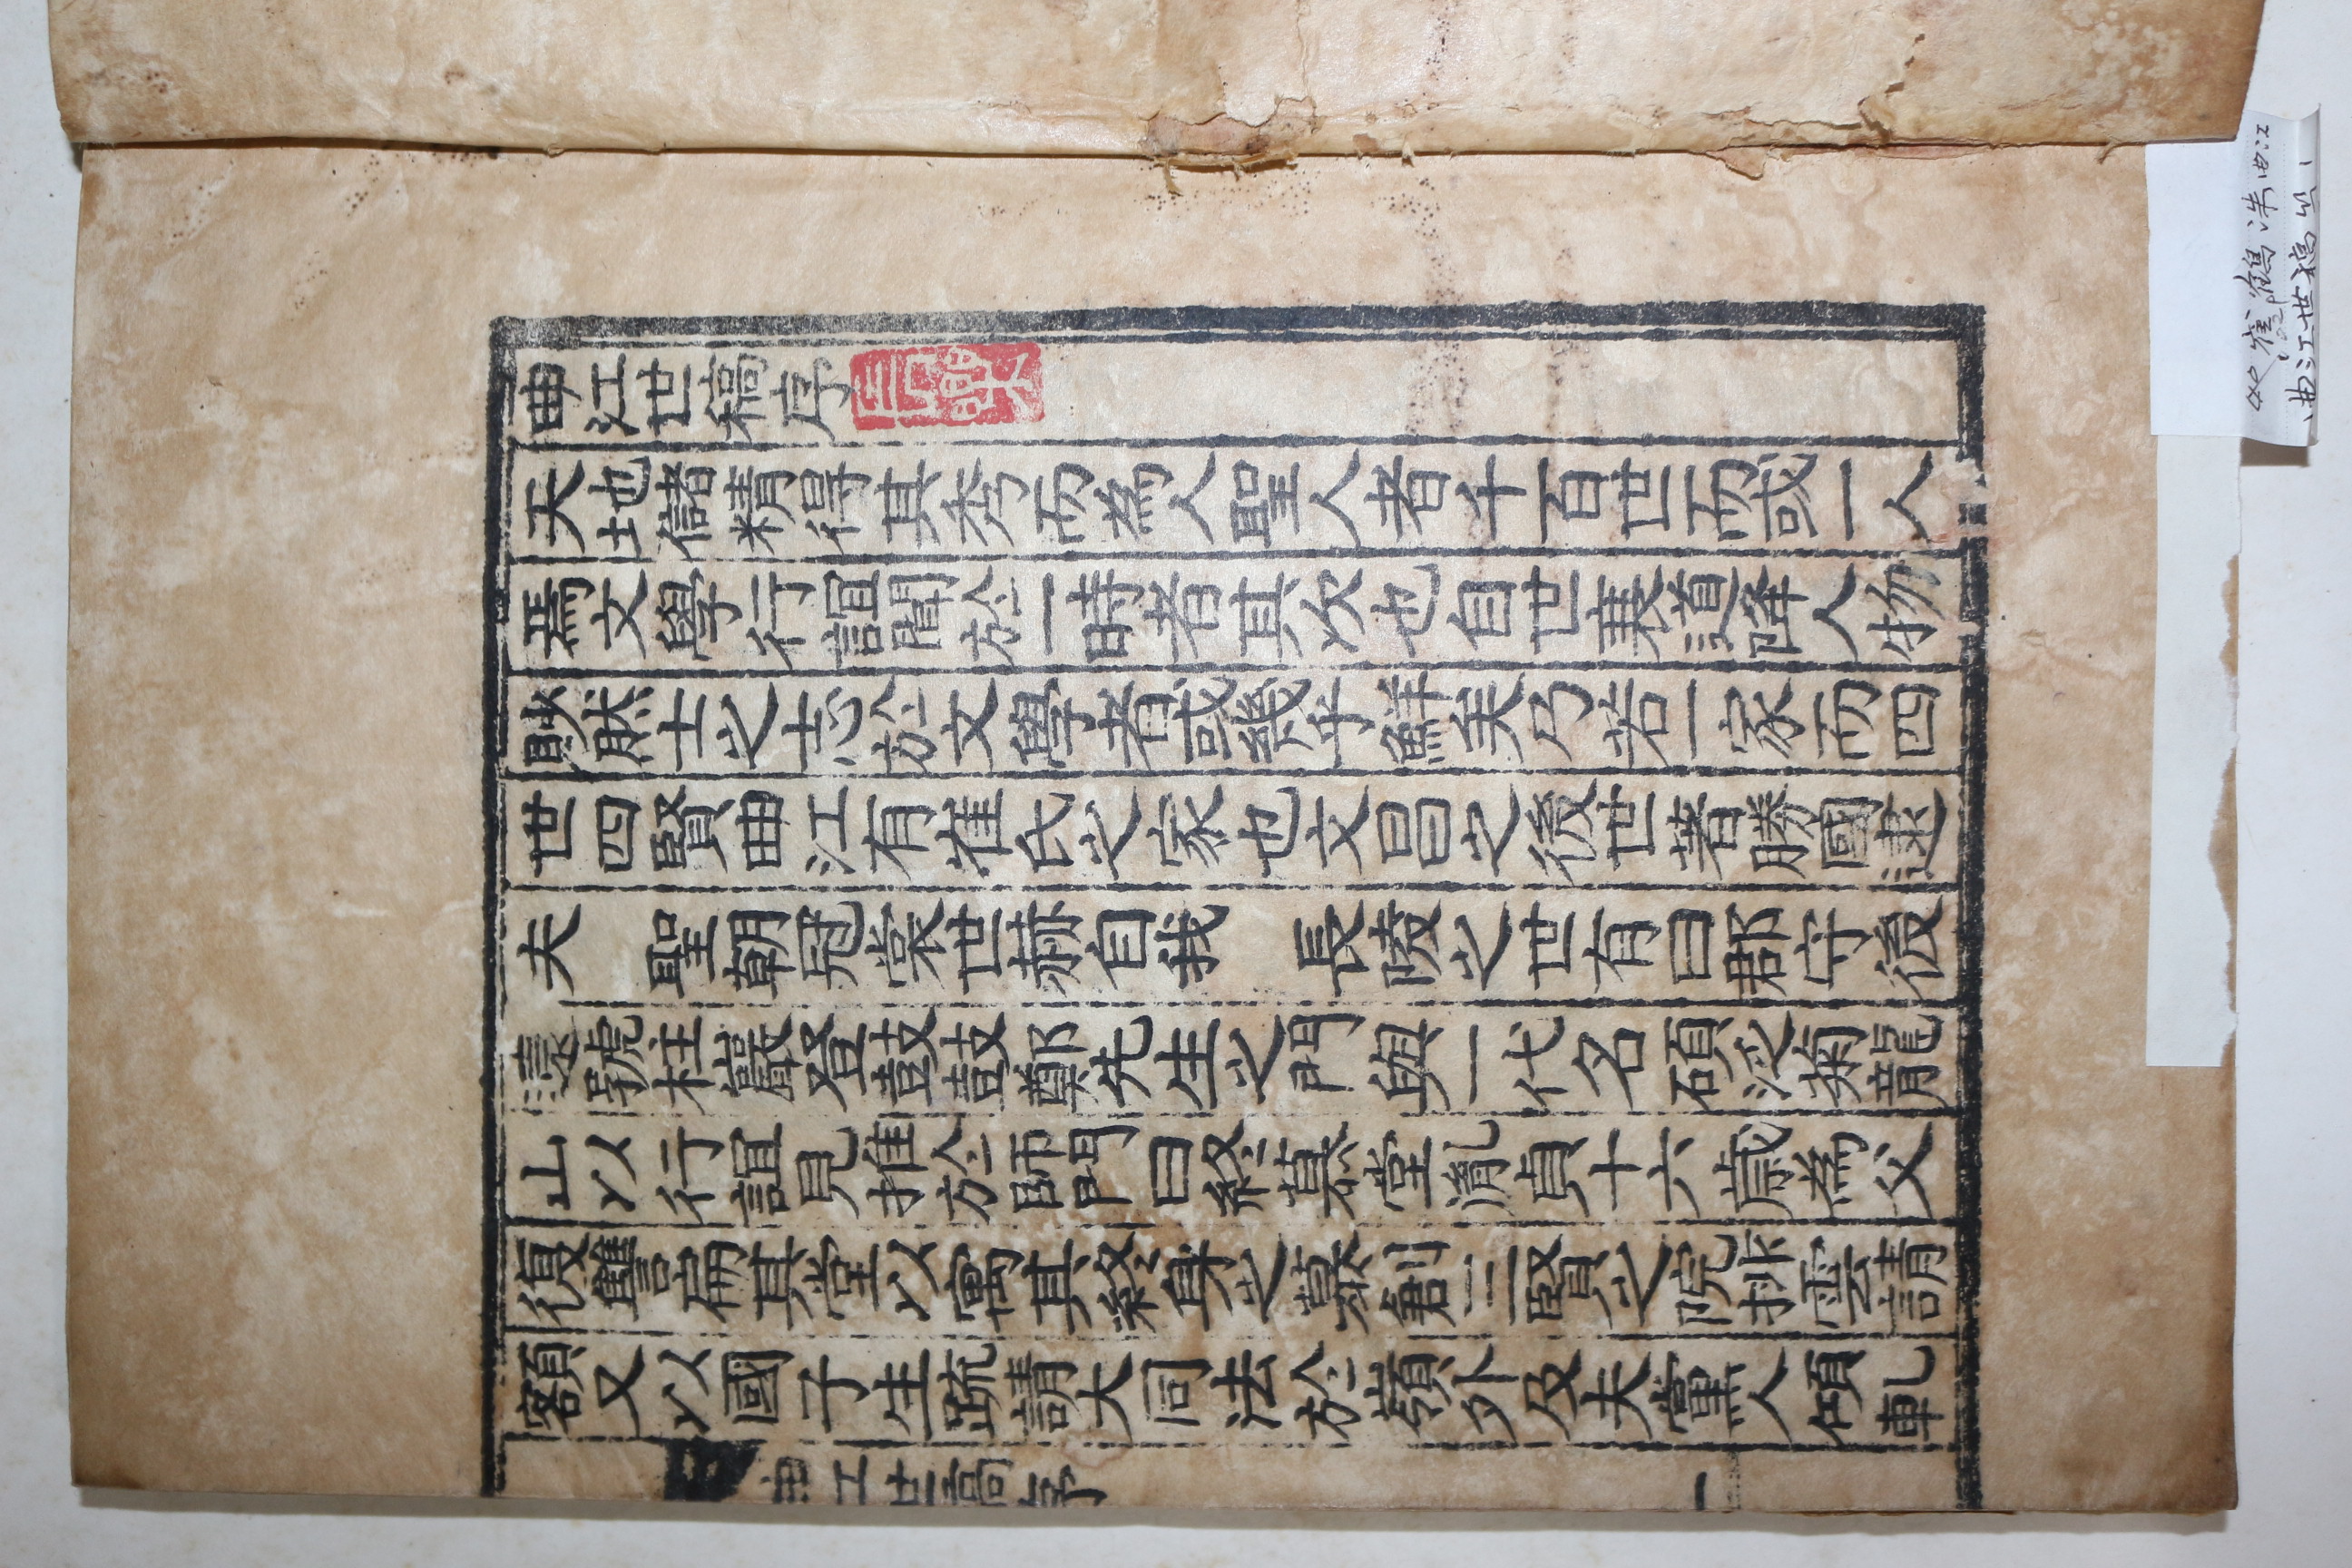 曲江世稿序
天地儲精得其秀而為人聖人者千百世而或一人
焉文學行誼聞於一時者其次也自世衰道降人物
眇然士之志於文學者或幾乎鮮矣乃若一家而四
世四賢曲江有崔氏之家也文昌之後世著勝國逮
夫　聖朝冠裳世赫自我　長陵之世有曰郡守後
遠號柱巖登鼓鼓鄭先生之門與一代名碩泛菊龍
山以行誼見推於師門曰終慕堂胤貞十六歲為父
復讐扁其堂以寓其終身之慕創三賢之院排雲請
額又以國子生疏請大同法於嶺外及夫黨人傾軋
曲江世稿序
一
崔鶴洙曲江
曲江世稿